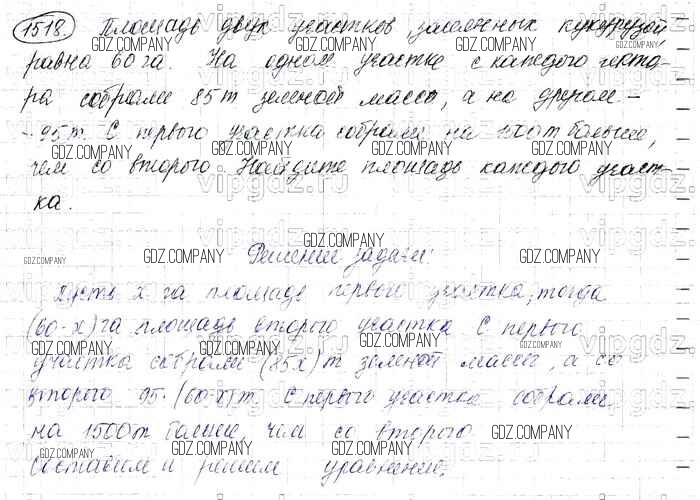 1518. Площадь двух участков засеянных кукурузой,
равна 60 га. На одном участке с каждого гекта-
ра собрали 85 т зеленой массы, а на другом -
- 95 т. С первого участка собрали на 1500 т больше,
чем со второго. Найдите площадь каждого участ-
ка.
Решение задачи:
Пусть x га площадь первого участка, тогда
(60-x) га площадь второго участка. С первого
участка собрали (85x) т зеленой массы, а со
второго 95·(60-x) т. С первого участка собрали
на 1500 т больше, чем со второго.
Составим и решим уравнение:
GDZ.COMPANY
vipgdz.ru